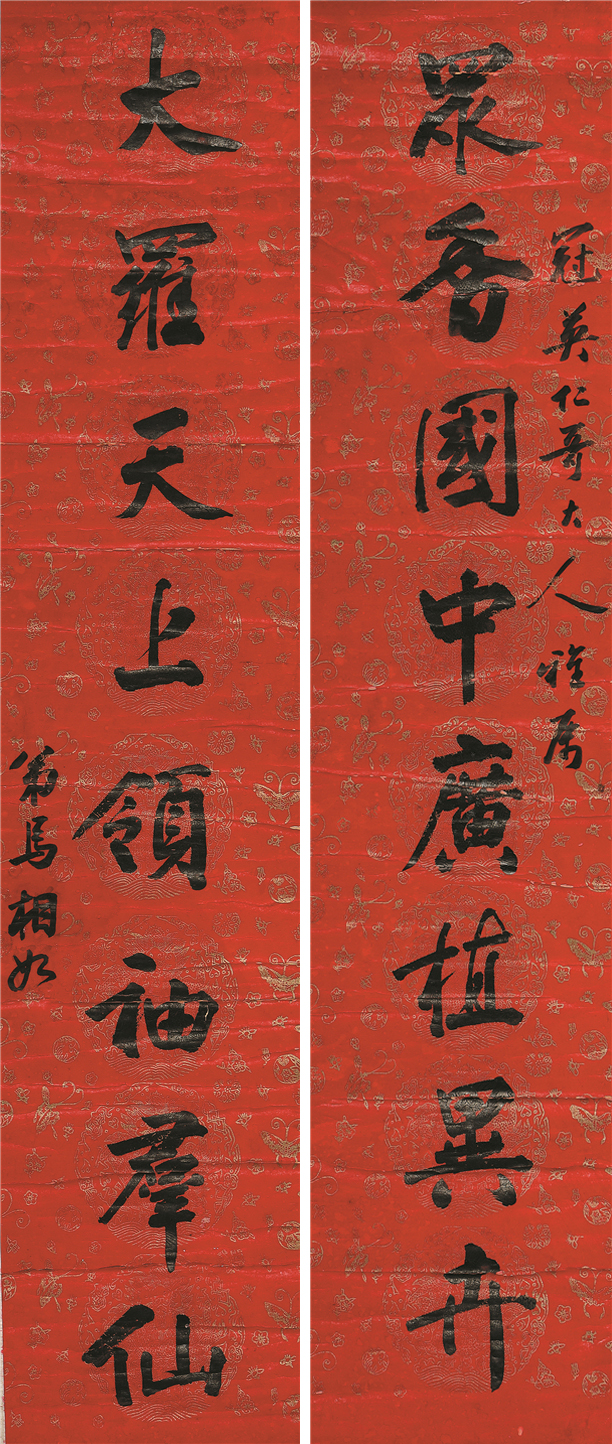 冠英仁哥大人雅属
眾香國中廣植異卉
大羅天上領袖羣仙
弟馬相如